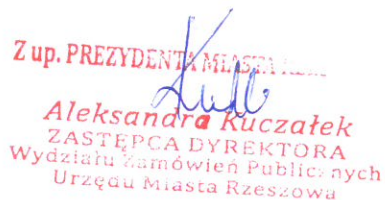 Z up. PREZYDENTA MIASTA
Aleksandra Kuczałek
ZASTĘPCA DYREKTORA
Wydziału Zamówień Publicznych
Urzędu Miasta Rzeszowa